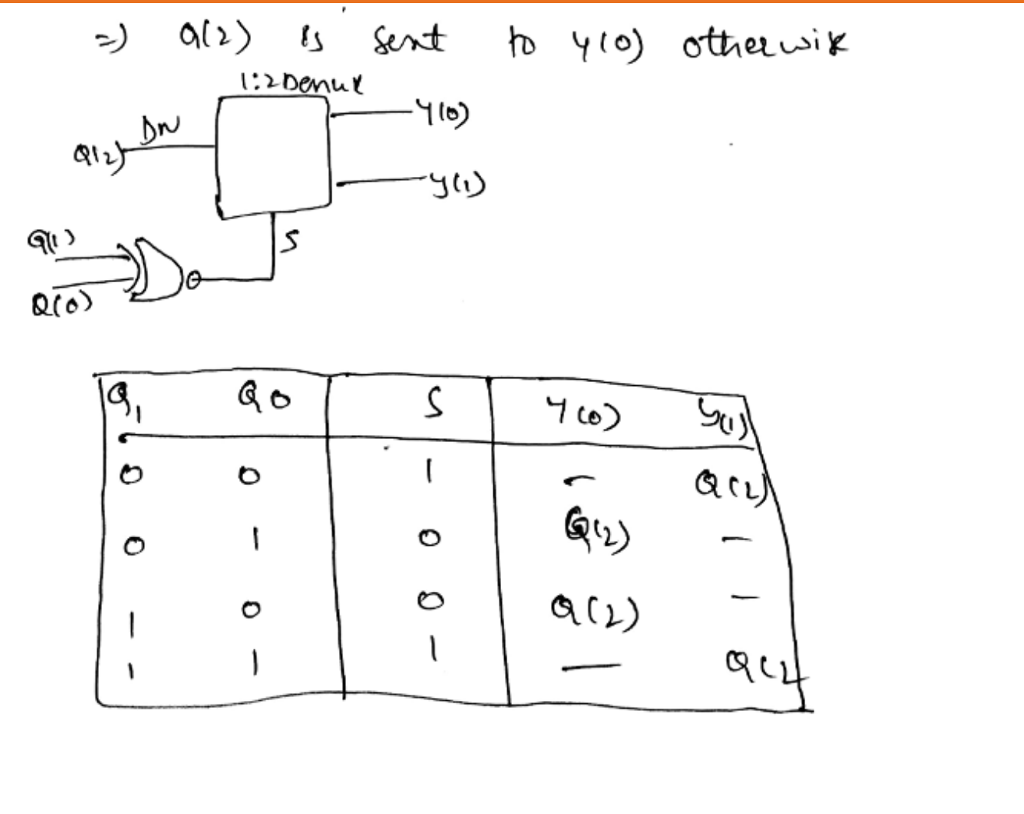 =) Q(2) is sent to Y(0) otherwise
1:2 Demux
DN
Q(2)
Y(0)
Y(1)
S
Q(1)
Q(0)
Q1 Q0 S Y(0) Y(1)
0 0 1 - Q(2)
0 1 0 Q(2) -
1 0 0 Q(2) -
1 1 1 - Q(2